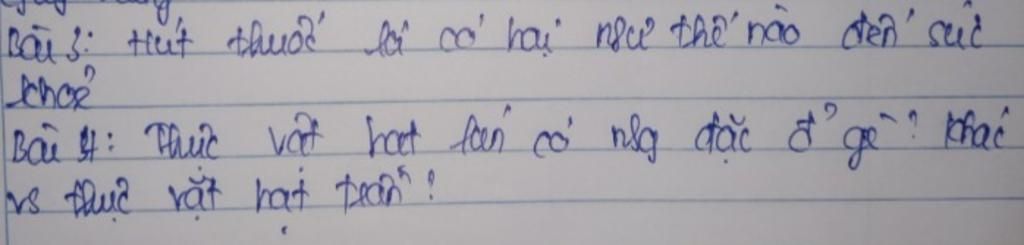 Bài 3: Hút thuốc lá có hại như thế nào đến sức
khoẻ
Bài 4: Thực vật hạt kín có nhg đặc đ² gì? khác
vs thực vật hạt trần?